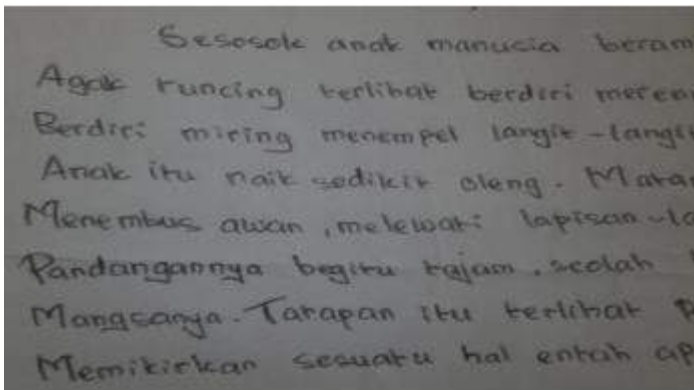 Sesosok anak manusia beram
Agak runcing terlihat berdiri meren
Berdiri miring menempel langit-langit
Anak itu naik sedikit oleng. Matan
Menembus awan, melewati lapisan-la
Pandangannya begitu tajam, seolah
Mangsanya. Tatapan itu terlihat
Memikirkan sesuatu hal entah ap